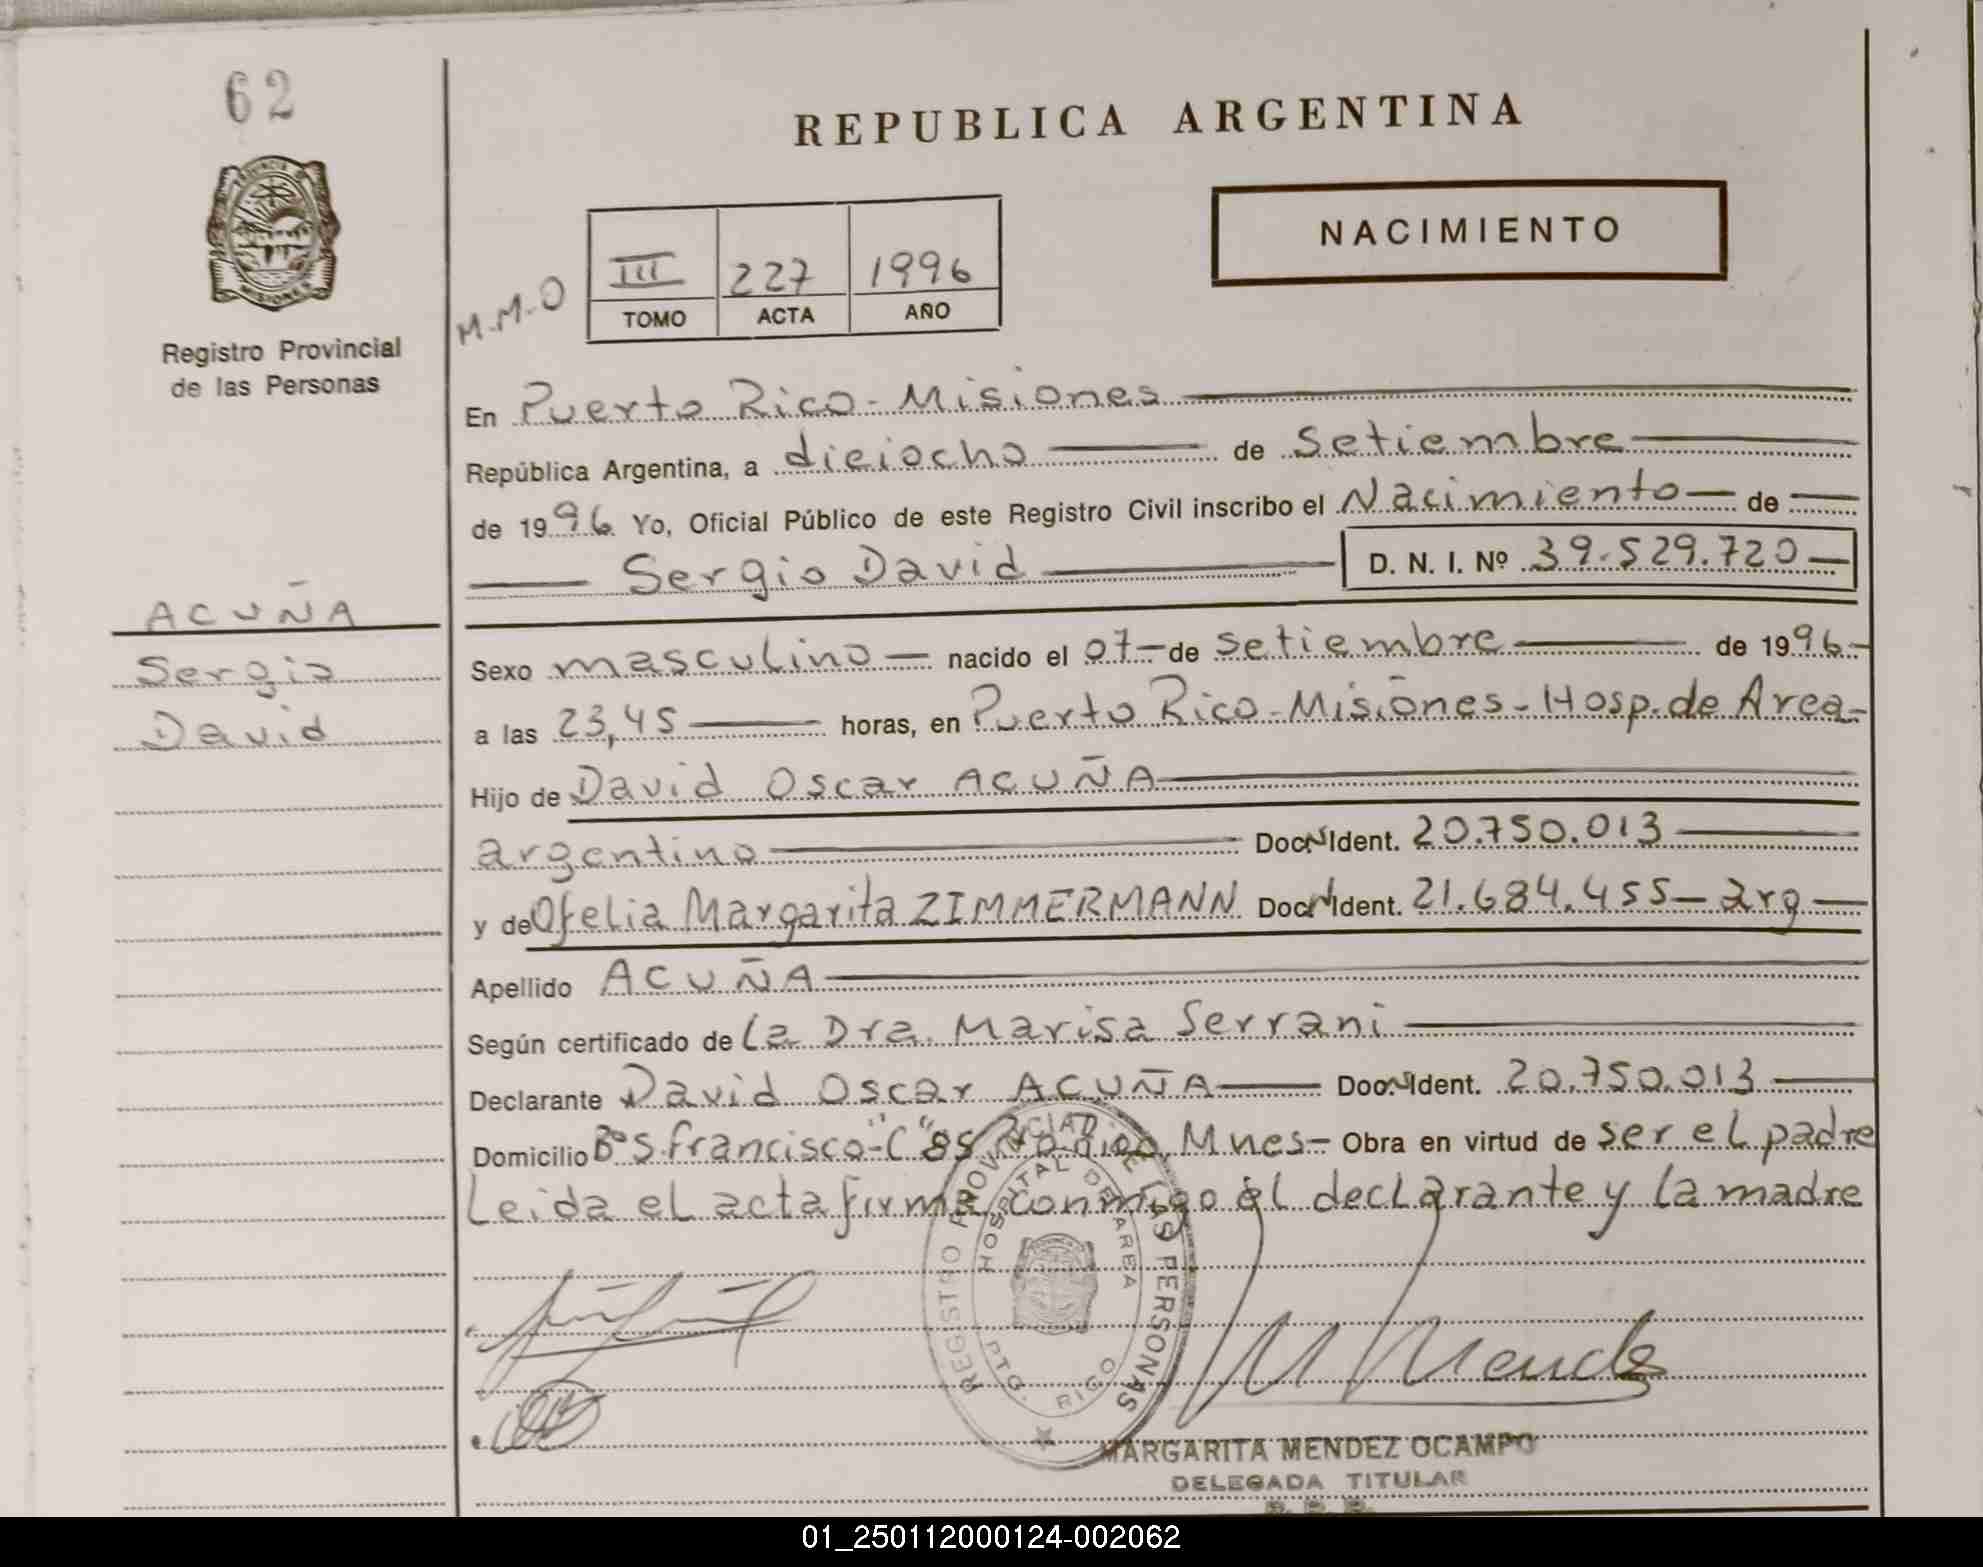 62
REPUBLICA ARGENTINA
NACIMIENTO
PROVINCIA D MISIONES
Registro Provincial
de las Personas
M.M.O
III 227 1996
TOMO ACTA AÑO
En Puerto Rico - Misiones
República Argentina, a dieiocho de Setiembre
de 1996 Yo, Oficial Público de este Registro Civil inscribo el Nacimiento de
Sergio David D. N. I. Nº 39.529.720
ACUÑA
Sergio
David
Sexo masculino nacido el 07 de setiembre de 1996
a las 23,45 horas, en Puerto Rico - Misiones - Hosp. de Area
Hijo de David Oscar ACUÑA
argentino Doc. N Ident. 20.750.013
y de Ofelia Margarita ZIMMERMANN Doc. N Ident. 21.684.455 - arg
Apellido ACUÑA
Según certificado de la Dra. Marisa Serrani
Declarante David Oscar ACUÑA Doc. N Ident. 20.750.013
Domicilio Bº S. Francisco - "C" 85 Mnes - Obra en virtud de ser el padre
Leida el acta firma conmigo el declarante y la madre
REGISTRO PROVINCIAL DE LAS PERSONAS
HOSPITAL DE AREA
PTO. RICO
M Mendez
MARGARITA MENDEZ OCAMPO
DELEGADA TITULAR
01_250112000124-002062